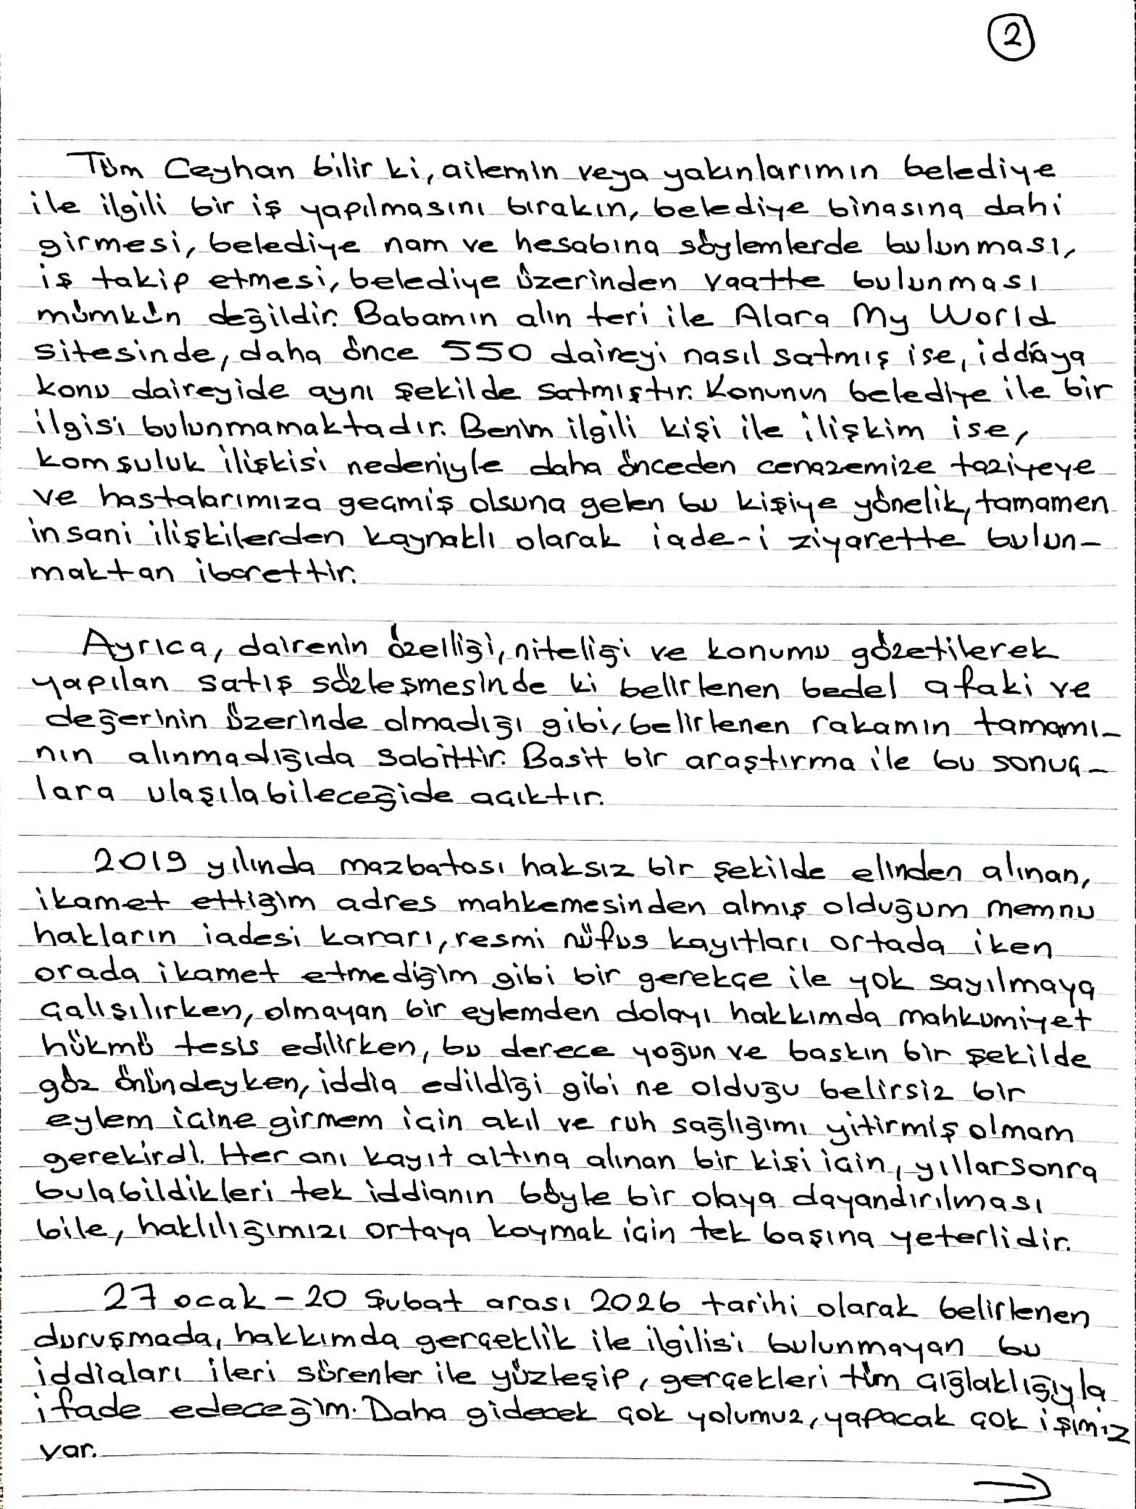 2
Tüm Ceyhan bilir ki, ailemin veya yakınlarımın belediye
ile ilgili bir iş yapılmasını bırakın, belediye binasına dahi
girmesi, belediye nam ve hesabına söylemlerde bulunması,
iş takip etmesi, belediye üzerinden vaatte bulunması
mümkün değildir. Babamın alın teri ile Alara My World
sitesinde, daha önce 550 daireyi nasıl satmış ise, iddiaya
konu daireyide aynı şekilde satmıştır. Konunun belediye ile bir
ilgisi bulunmamaktadır. Benim ilgili kişi ile ilişkim ise,
komşuluk ilişkisi nedeniyle daha önceden cenazemize taziyeye
ve hastalarımıza geçmiş olsuna gelen bu kişiye yönelik, tamamen
insani ilişkilerden kaynaklı olarak iade-i ziyarette bulun-
maktan ibarettir.
Ayrıca, dairenin özelliği, niteliği ve konumu gözetilerek
yapılan satış sözleşmesinde ki belirlenen bedel afaki ve
değerinin üzerinde olmadığı gibi, belirlenen rakamın tamamı-
nın alınmadığıda sabittir. Basit bir araştırma ile bu sonuç-
lara ulaşılabileceğide açıktır.
2019 yılında mazbatası haksız bir şekilde elinden alınan,
ikamet ettiğim adres mahkemesinden almış olduğum memnu
hakların iadesi kararı, resmi nüfus kayıtları ortada iken
orada ikamet etmediğim gibi bir gerekçe ile yok sayılmaya
çalışılırken, olmayan bir eylemden dolayı hakkımda mahkumiyet
hükmü tesis edilirken, bu derece yoğun ve baskın bir şekilde
göz önündeyken, iddia edildiği gibi ne olduğu belirsiz bir
eylem içine girmem için akıl ve ruh sağlığımı yitirmiş olmam
gerekirdi. Her anı kayıt altına alınan bir kişi için, yıllarsonra
bulabildikleri tek iddianın böyle bir olaya dayandırılması
bile, haklılığımızı ortaya koymak için tek başına yeterlidir.
27 ocak - 20 Şubat arası 2026 tarihi olarak belirlenen
duruşmada, hakkımda gerçeklik ile ilgilisi bulunmayan bu
iddiaları ileri sürenler ile yüzleşip, gerçekleri tüm çığlaklığıyla
ifade edeceğim. Daha gidecek çok yolumuz, yapacak çok işimiz
var.
→